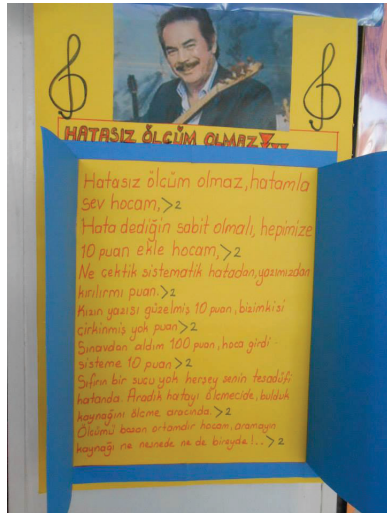 HATASIZ ÖLÇÜM OLMAZ
Hatasız ölçüm olmaz, hatamla
sev hocam, >2
Hata dediğin sabit olmalı, hepimize
10 puan ekle hocam, >2
Ne çektik sistematik hatadan, yazımızdan
kırılırmı puan. >2
Kızın yazısı güzelmiş 10 puan, bizimkisi
çirkinmiş yok puan >2
Sınavdan aldım 100 puan, hoca girdi
sisteme 10 puan >2
Sıfırın bir suçu yok herşey senin tesadüfi
hatanda. Aradık hatayı ölçmecide, bulduk
kaynağını ölçme aracında. >2
Ölçümü basan ortamdır hocam, aramayın
kaynağı ne nesnede ne de bireyde!.. >2